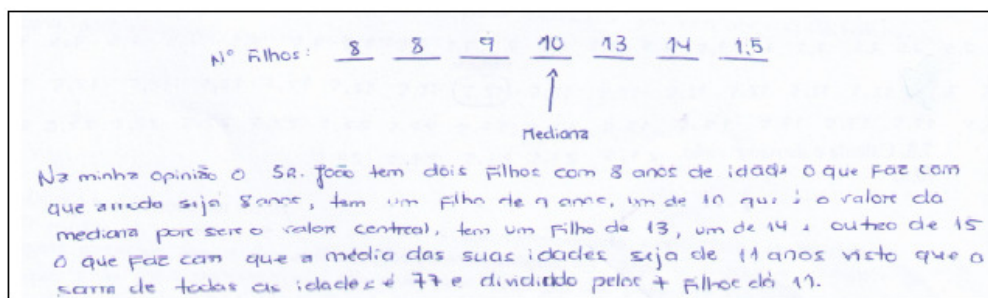 Nº Filhos: 8 8 9 10 13 14 15
Mediana
Na minha opinião o SR. João tem dois filhos com 8 anos de idade o que faz com
que a moda seja 8 anos, tem um filho de 9 anos, um de 10 que é o valor da
mediana por ser o valor central, tem um filho de 13, um de 14 e outro de 15
o que faz com que a média das suas idades seja de 11 anos visto que a
soma de todas as idades é 77 e dividido pelos 7 filhos dá 11.